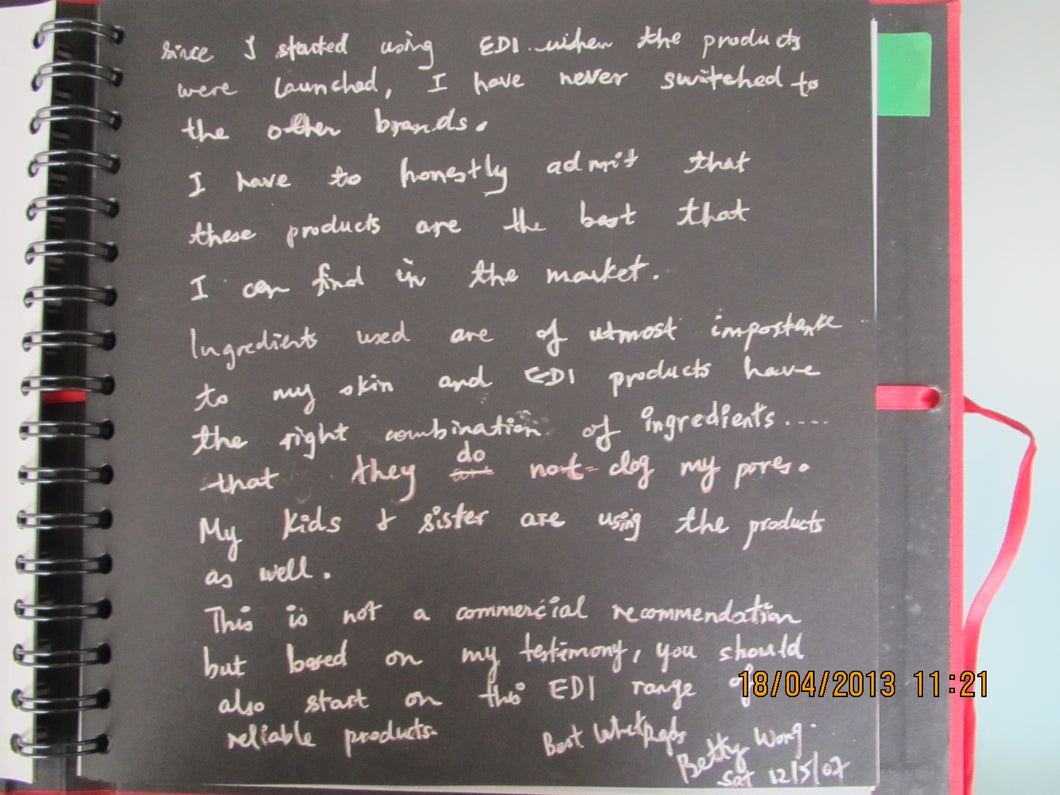 since I started using EDI when the products
were launched, I have never switched to
the other brands.
I have to honestly admit that
these products are the best that
I can find in the market.
Ingredients used are of utmost importance
to my skin and EDI products have
the right combination of ingredients....
that they do not clog my pores.
My kids & sister are using the products
as well.
This is not a commercial recommendation
but based on my testimony, you should
also start on this EDI range of
reliable products.
Best
Betty Wong.
Sat 12/5/07
18/04/2013 11:21